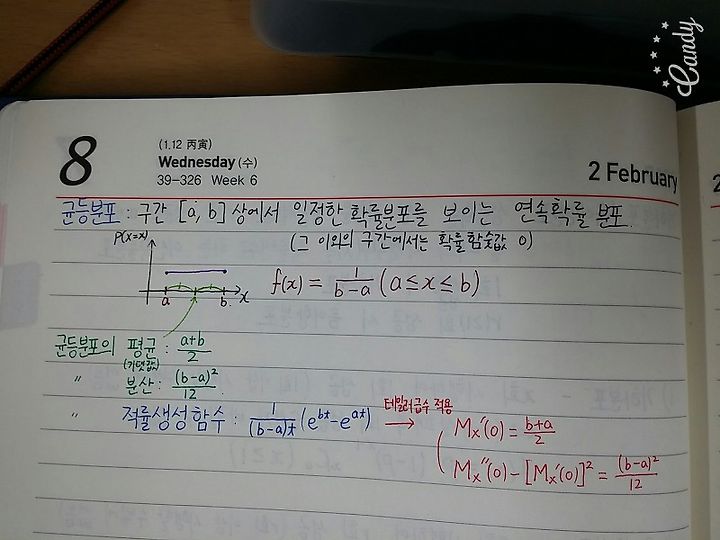 Candy
8
(1.12 丙寅)
Wednesday (수)
39-326 Week 6
2 February
균등분포 : 구간 [a, b] 상에서 일정한 확률분포를 보이는 연속확률 분포.
(그 이외의 구간에서는 확률함숫값 0)
P(X=x)
a b x
f(x) = 1/(b-a) (a≤x≤b)
균등분포의 평균 : (a+b)/2
(기댓값)
〃 분산 : (b-a)²/12
〃 적률생성함수 : 1/((b-a)t) (e^{bt}-e^{at})
테일러급수 적용
→ Mx'(0) = (b+a)/2
Mx''(0) - [Mx'(0)]² = (b-a)²/12